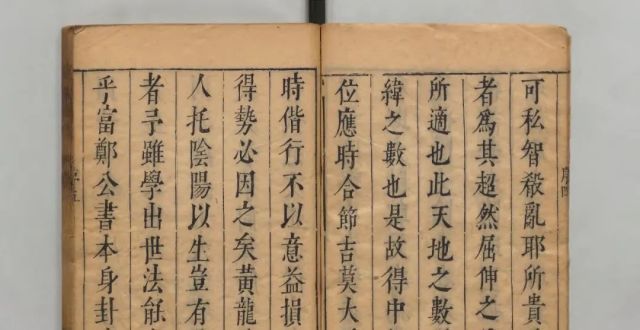 可私智殽亂耶所貴
者為其超然屈伸之
所適也此天地之數
緯之數也是故得中
位應時合節吉莫大
時偕行不以意益損
得勢必因之矣黃龍
人托陰陽以生豈有
者予雖學出世法能
乎富鄭公書本身卦
序四
序五